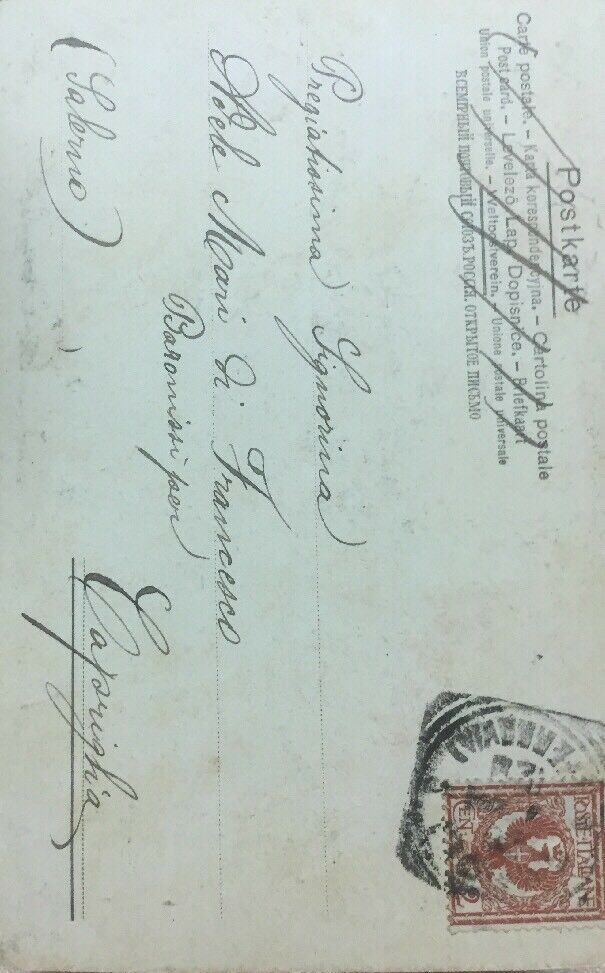 Postkarte
Carte postale. – Karta korespondencyjna. – Cartolina postale
Post card. – Levelező Lap. Dopisnice. – Briefkaart
Union postale universelle. – Weltpostverein. – Unione postale universale
ВСЕМІРНЫЙ ПОЧТОВЫЙ СОЮЗЪ. РОССІЯ. ОТКРЫТОЕ ПИСЬМО
Pregiatissima Signorina
Adele Mari di Francesco
Baronissi per
Capriglia
(Salerno)
POSTE ITALIANE
CENT. 2